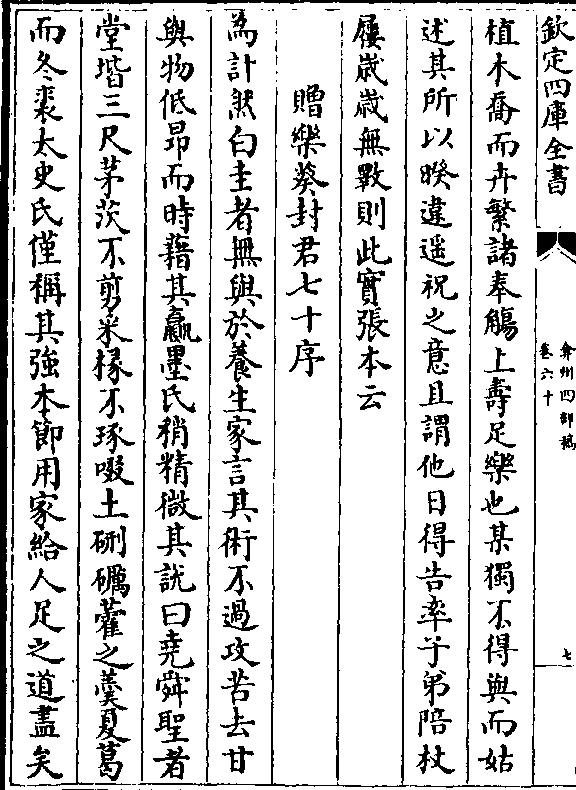 欽定四庫全書
弇州四部稿
卷六十
七
植木喬而卉繁諸奉觴上壽足樂也某獨不得與而姑
述其所以暌違遥祝之意且謂他日得告率子弟陪杖
屨歲歲無斁則此實張本云
贈樂葵封君七十序
為計然白圭者無與於養生家言其術不過攻苦去甘
與物低昂而時藉其贏墨氏稍精微其説曰堯舜聖者
堂堦三尺茅茨不剪采椽不琢啜土硎礪藿之羮夏葛
而冬裘太史氏僅稱其強本節用家給人足之道盡矣